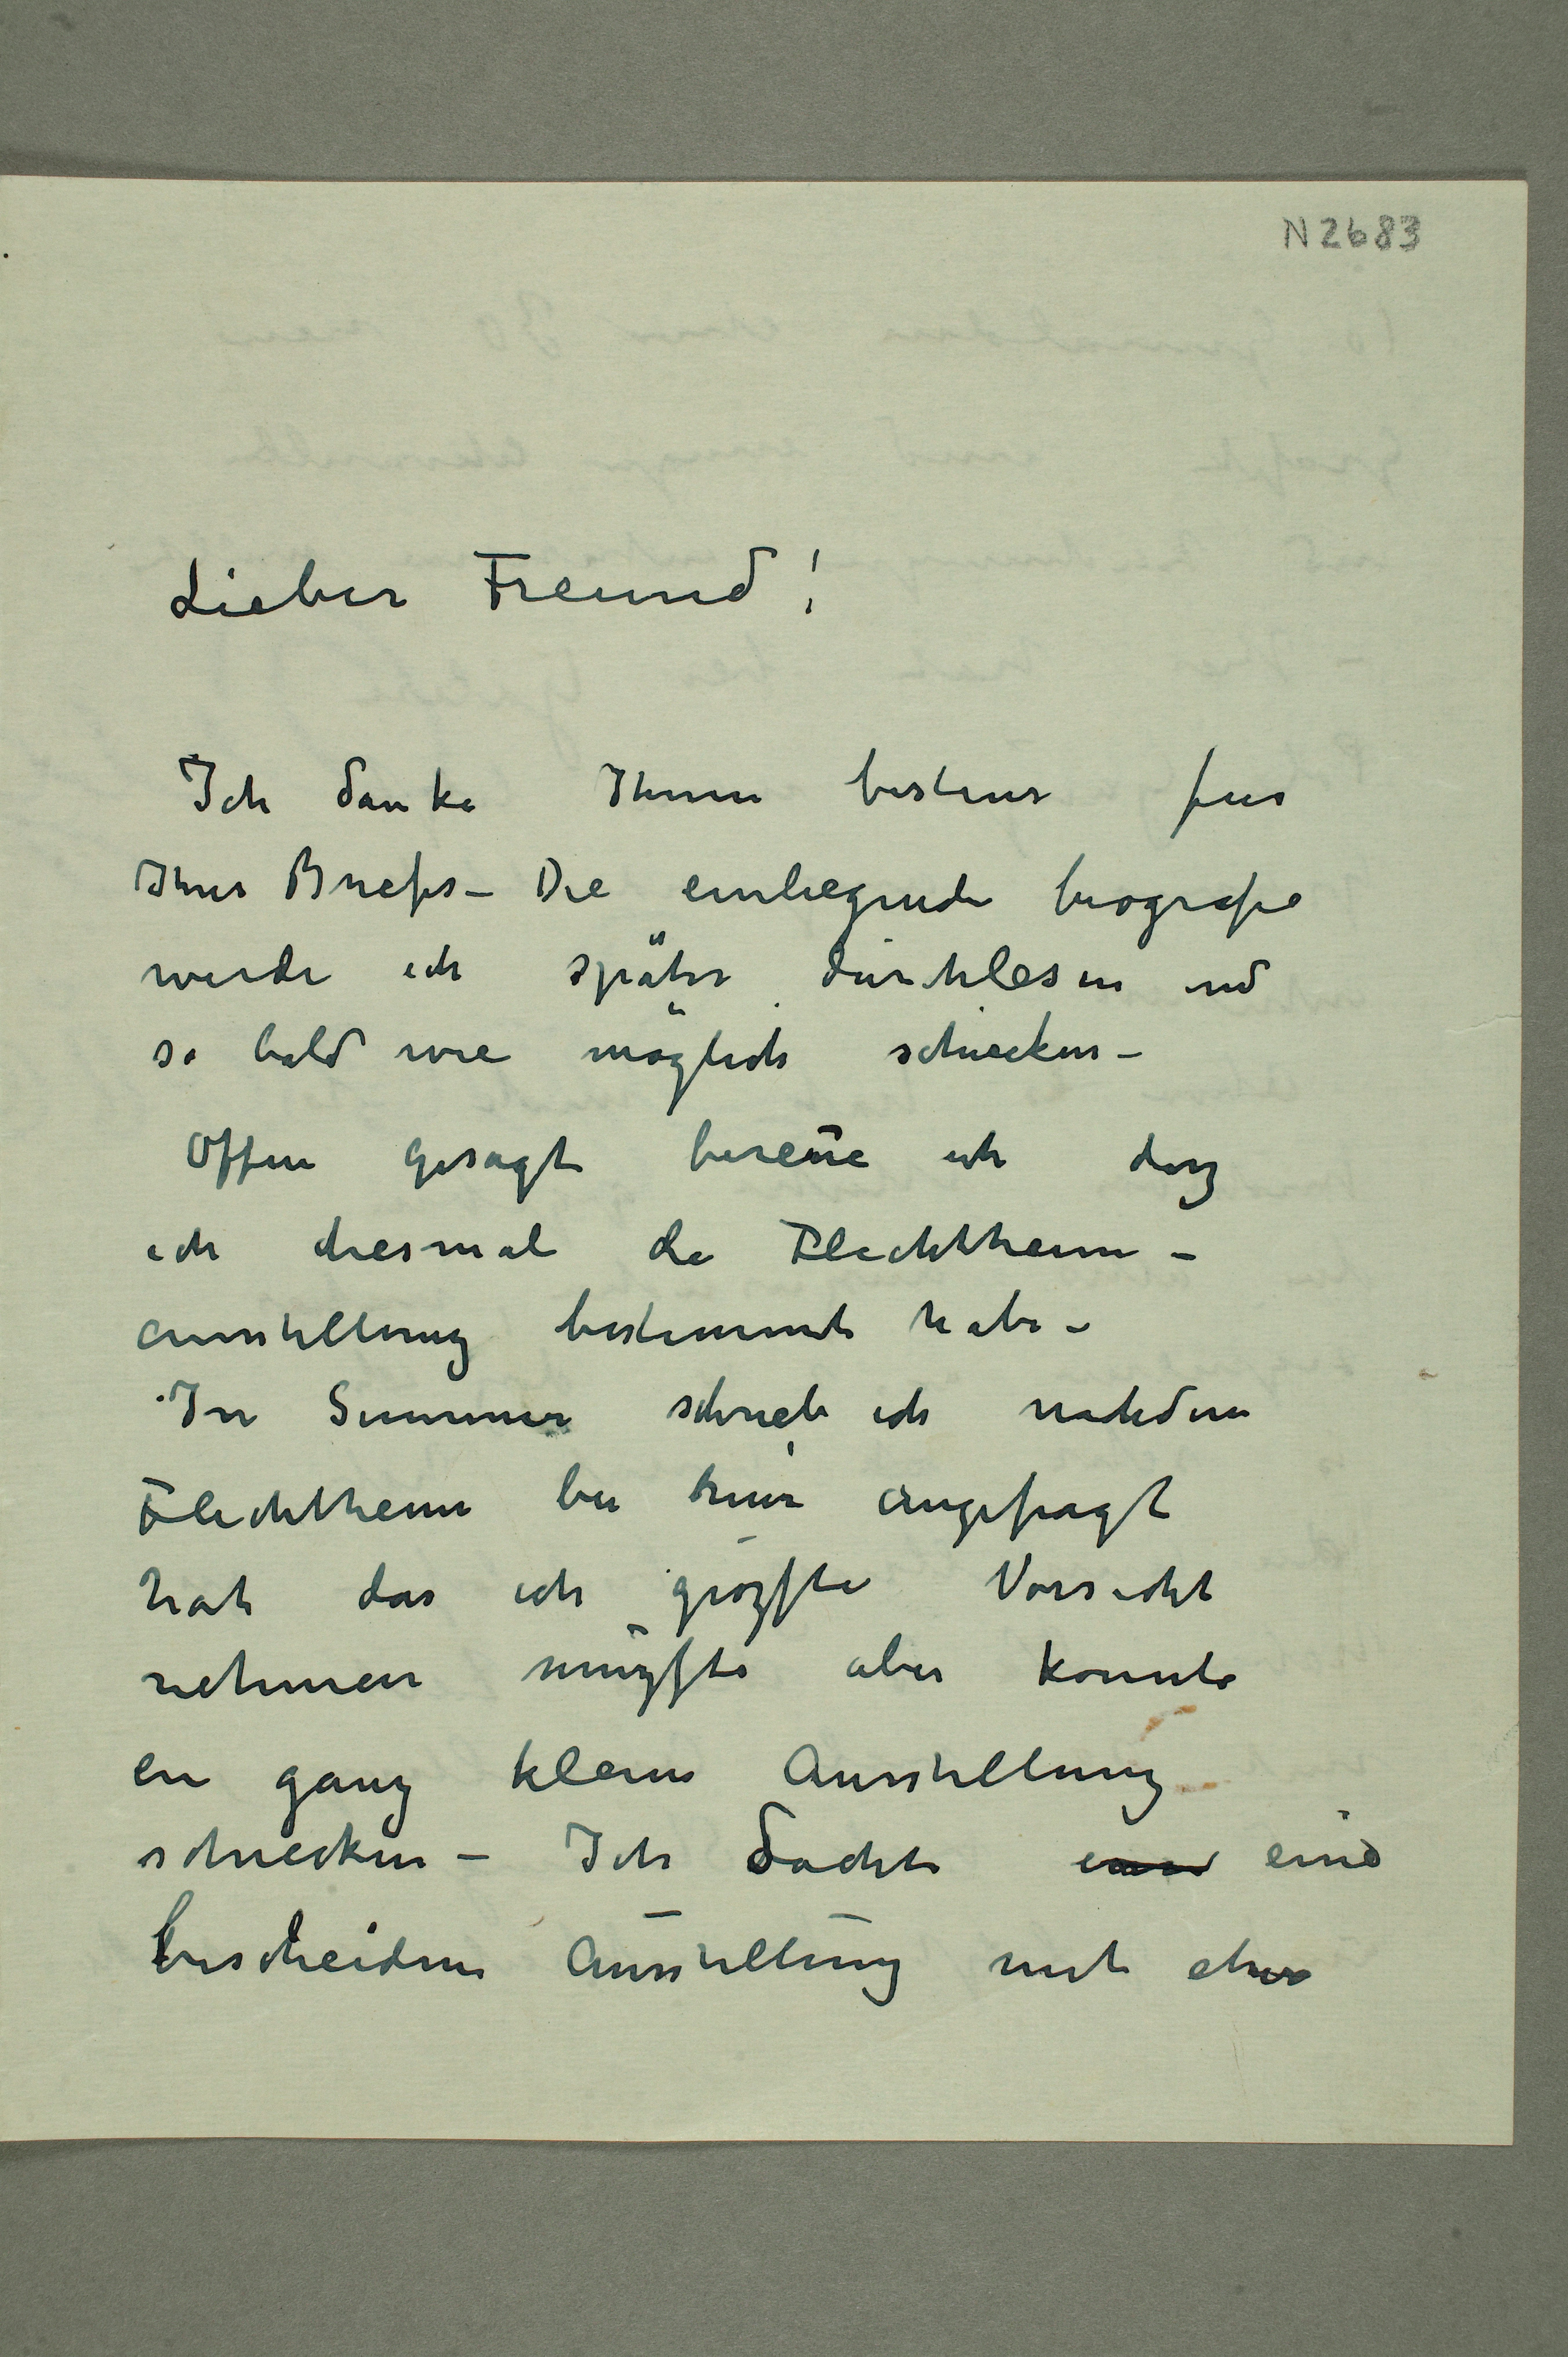 N 2683
Lieber Freund!
Ich danke Ihnen bestens fur
Ihres Briefes – Die einliegende biografie
werde ich später durchlesen und
so bald wie möglich schicken –
Offen gesagt bereue ich dasz
ich diesmal die Flechtheim –
ausstellung bestimmt habe –
In Summer schrieb ich nachdem
Flechtheim bei mir angefragt
hat das ich grözste Vorsicht
nehmen müszte aber konnte
ein ganz kleine Ausstellung
schicken – Ich dachte eine
bescheidene Ausstellung mit etwa